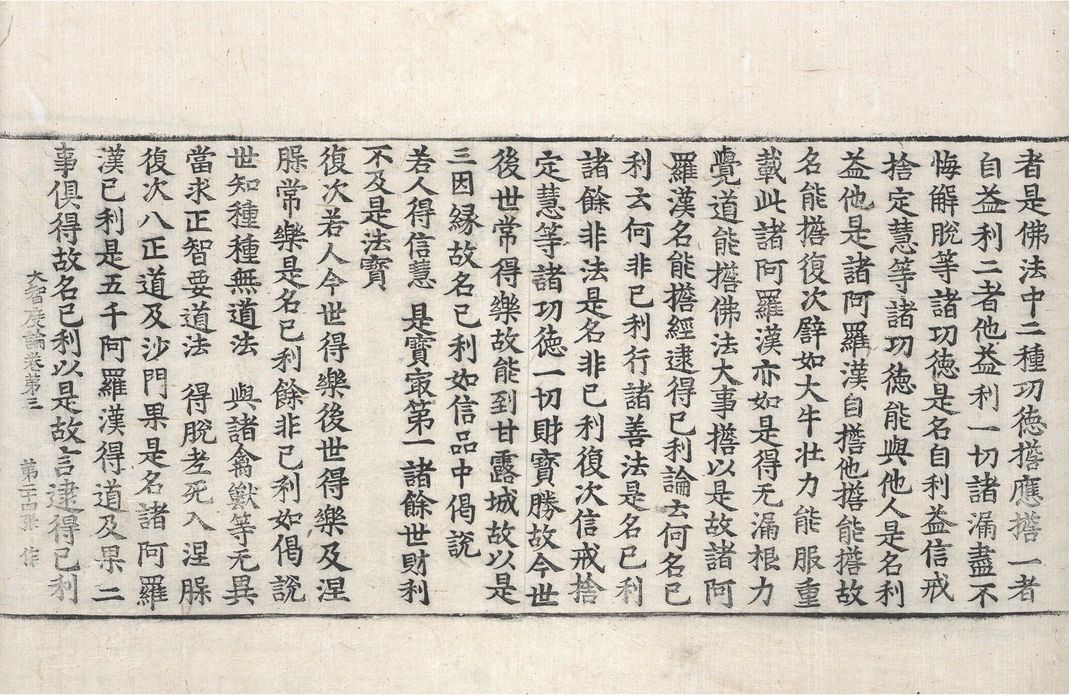 者是佛法中二種功德擔應擔一者
自益利二者他益利一切諸漏盡不
悔解脫等諸功德是名自利益信戒
捨定慧等諸功德能與他人是名利
益他是諸阿羅漢自擔他擔能擔故
名能擔復次譬如大牛壯力能服重
載此諸阿羅漢亦如是得无漏根力
覺道能擔佛法大事擔以是故諸阿
羅漢名能擔經逮得已利論云何名已
利云何非已利行諸善法是名已利
諸餘非法是名非已利復次信戒捨
定慧等諸功德一切財寶勝故今世
後世常得樂故能到甘露城故以是
三因緣故名已利如信品中偈說
若人得信慧 是寶㝡第一 諸餘世財利
不及是法寶
復次若人今世得樂後世得樂及涅
槃常樂是名已利餘非已利如偈說
世知種種無道法 與諸禽獸等无異
當求正智要道法 得脫老死入涅槃
復次八正道及沙門果是名諸阿羅
漢已利是五千阿羅漢得道及果二
事俱得故名已利以是故言逮得已利
大智度論卷第三 第二十四張 作